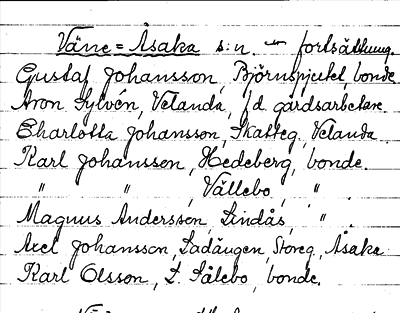 Väne=Åsaka s:n. — fortsättning.
Gustaf Johansson, Björnspjutet, bonde
Aron Sylvén, Velanda, f d gårdsarbetare
Charlotta Johansson, Skatteg, Velanda
Karl Johansson, Hedeberg, bonde.
" " , Vällebo, " .
Magnus Andersson, Lindås, " .
Axel Johansson, Ladäugen, Storeg, Åsaka
Karl Olsson, L. Sälebo, bonde.